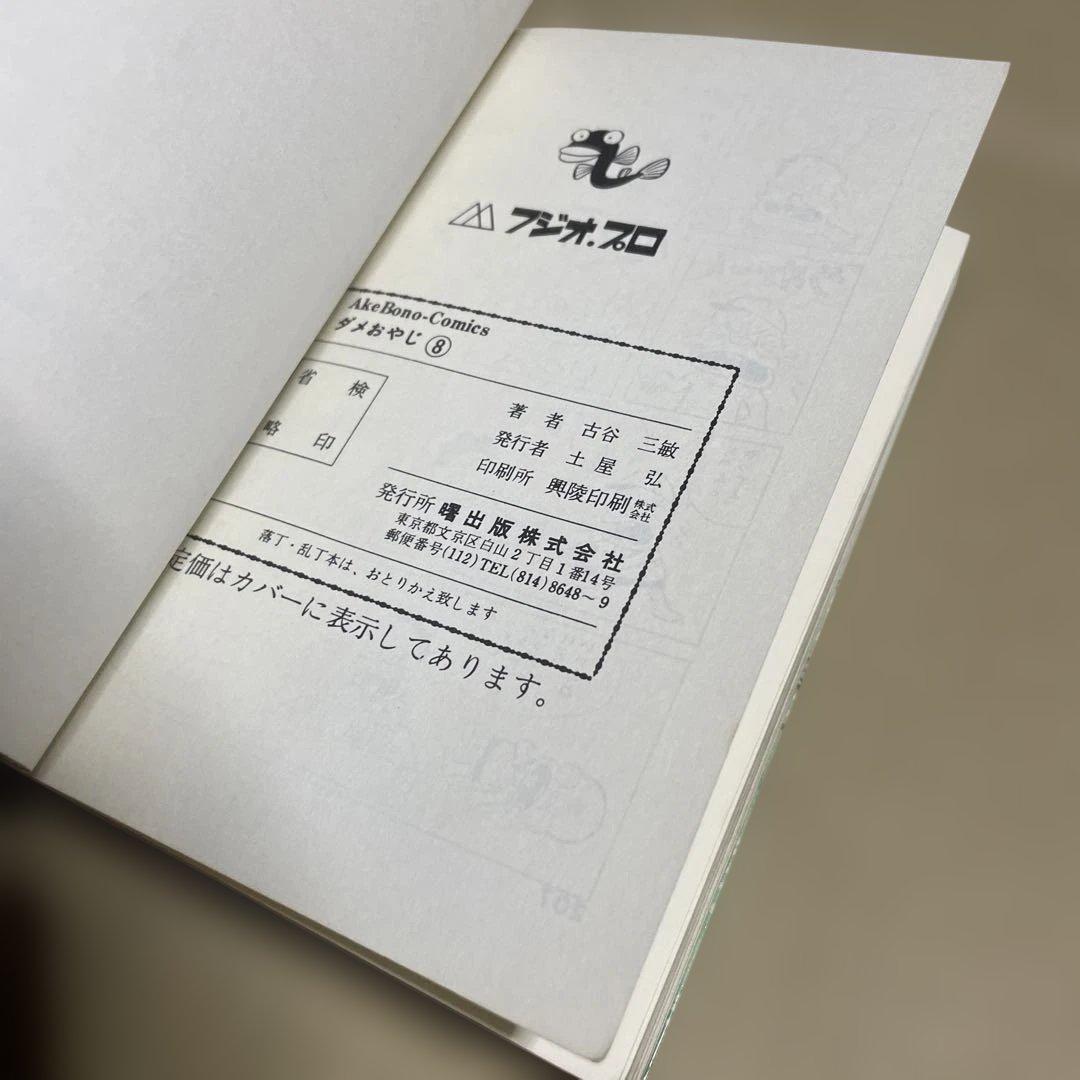 フジオ.プロ
AkeBono-Comics
ダメおやじ⑧
省 検
略 印
著者 古谷 三敏
発行者 土屋 弘
印刷所 興陵印刷株式会社
発行所 曙出版株式会社
東京都文京区白山2丁目1番14号
郵便番号(112)TEL(814)8648〜9
落丁・乱丁本は、おとりかえ致します
定価はカバーに表示してあります。